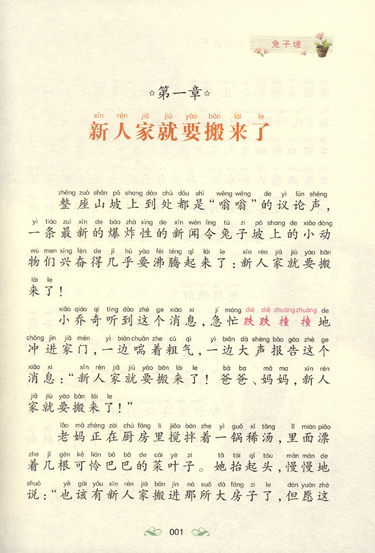 兔子坡
☆第一章☆
xīn rén jiā jiù yào bān lái le
新人家就要搬来了
zhěng zuò shān pō shang dào chù dōu shì wēng wēng de yì lùn shēng
整座山坡上到处都是“嗡嗡”的议论声，
yì tiáo zuì xīn de bào zhà xìng de xīn wén lìng tù zi pō shang de xiǎo dòng
一条最新的爆炸性的新闻令兔子坡上的小动
wù men xīng fèn de jī hū yào fèi téng qǐ lái le xīn rén jiā jiù yào bān
物们兴奋得几乎要沸腾起来了：新人家就要搬
lái le
来了！
xiǎo qiáo qí tīng dào zhè ge xiāo xi jí máng diē diē zhuàng zhuàng de
小乔奇听到这个消息，急忙跌跌撞撞地
chōng jìn jiā mén yì biān chuǎn zhe cū qì yì biān dà shēng bào gào zhè ge
冲进家门，一边喘着粗气，一边大声报告这个
xiāo xi xīn rén jiā jiù yào bān lái le bà ba mā ma xīn rén
消息：“新人家就要搬来了！爸爸、妈妈，新人
jiā jiù yào bān lái le
家就要搬来了！”
lǎo mā zhèng zài chú fáng li jiǎo bàn zhe yì guō xī tāng lǐ miàn piāo
老妈正在厨房里搅拌着一锅稀汤，里面漂
zhe jǐ gēn kě lián bā bā de cài yè zi tā tái qǐ tóu màn màn de
着几根可怜巴巴的菜叶子。她抬起头，慢慢地
shuō yě gāi yǒu xīn rén jiā bān jìn nà suǒ dà fáng zi le dàn yuàn zhè
说：“也该有新人家搬进那所大房子了，但愿这
001